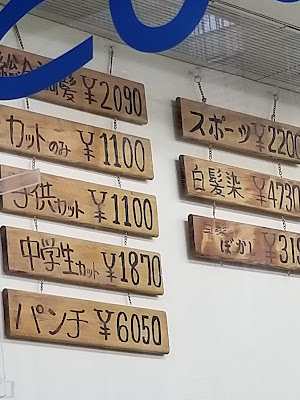 総合調髪 ¥2090
カットのみ ¥1100
子供カット ¥1100
中学生カット ¥1870
パンチ ¥6050
スポーツ ¥2200
白髪染 ¥4730
ぼかし ¥315